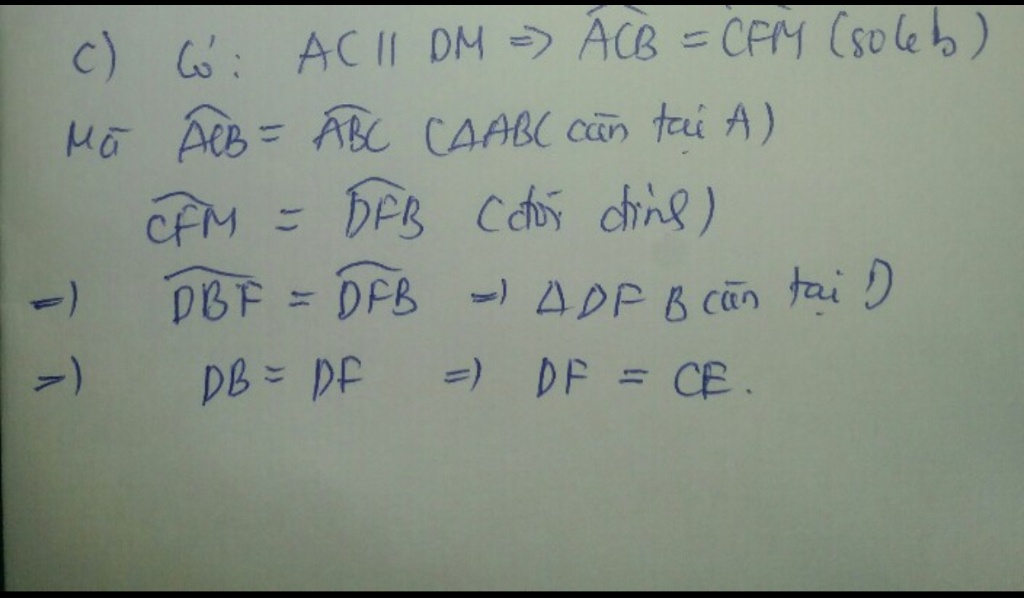 c) Có: AC || DM => ACB = CFM (so le b)
Mà ACB = ABC (ΔABC cân tại A)
CFM = DFB (đối đỉnh)
=> DBF = DFB => ΔDFB cân tại D
=> DB = DF => DF = CE.